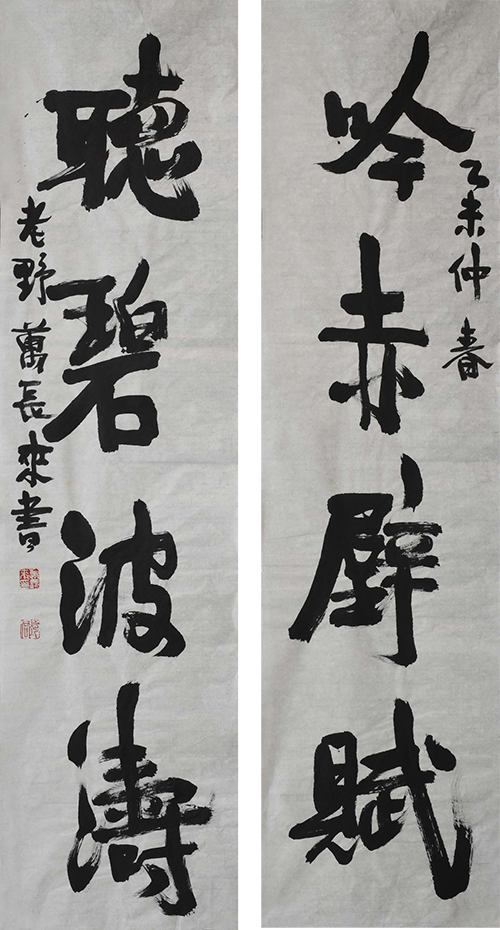 吟赤壁賦
乙未仲春
聽碧波濤
老野萬長來書